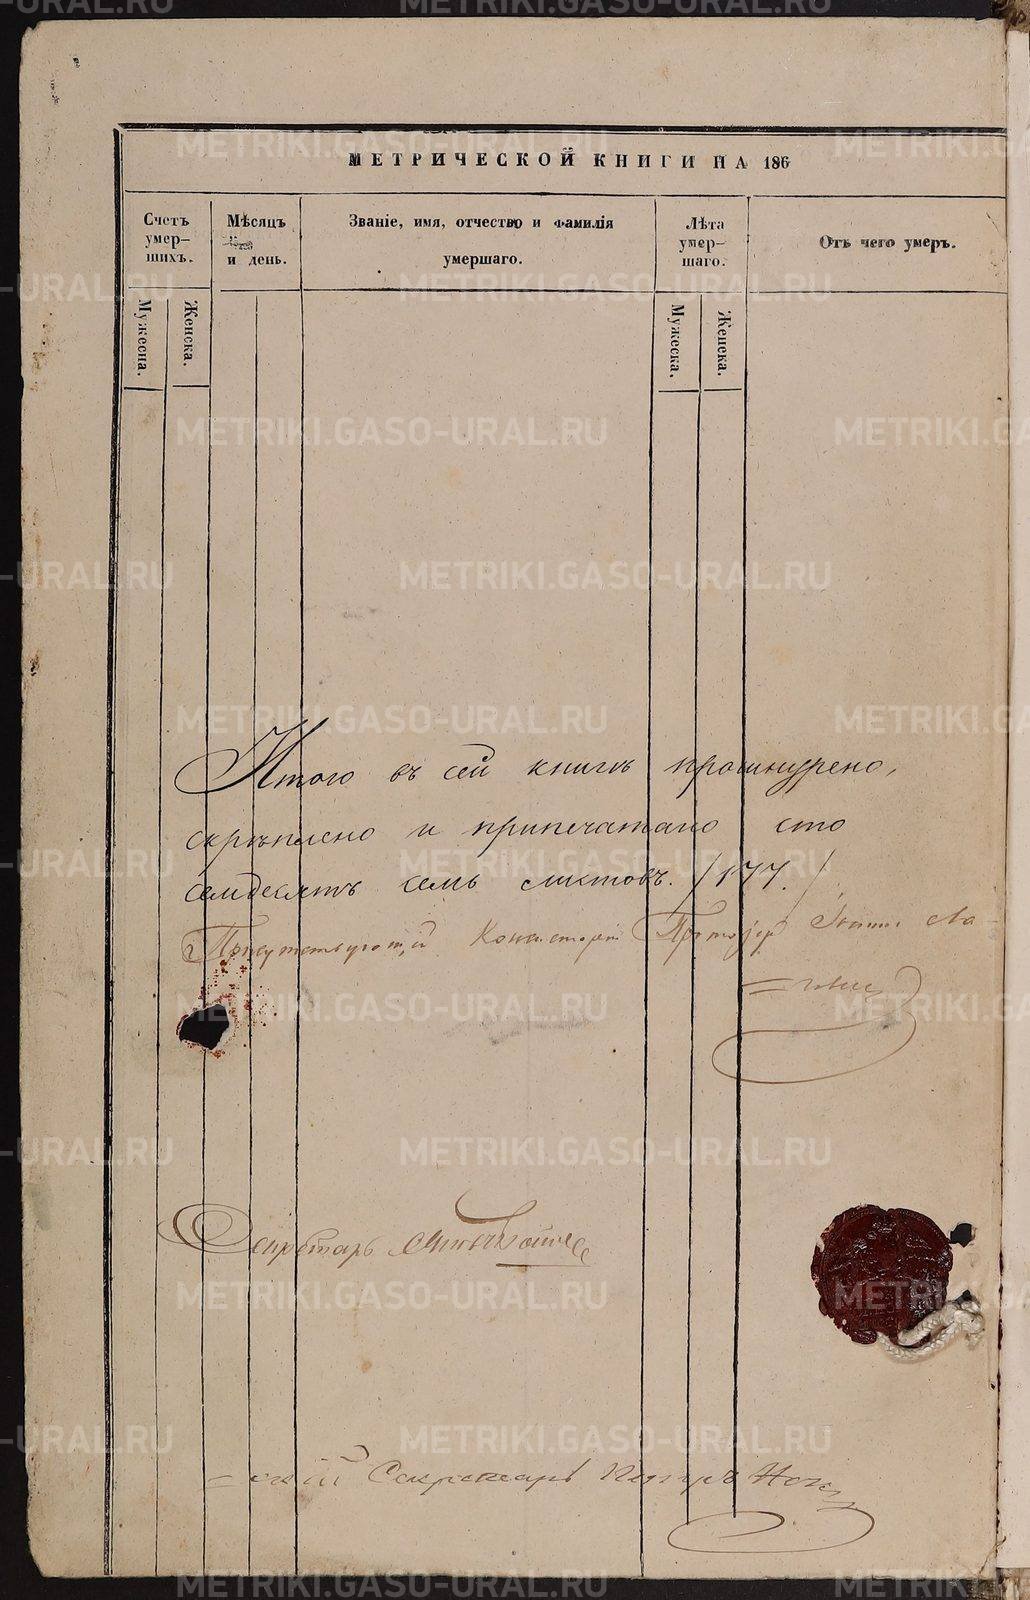 МЕТРИЧЕСКОЙ КНИГИ НА 186
Счетъ умершихъ.
Мѣсяцъ и день.
Званіе, имя, отчество и фамилія умершаго.
Лѣта умершаго.
Отъ чего умеръ.
Мужеска.
Женска.
Мужеска.
Женска.
Итого въ сей книгѣ прошнурено,
скрѣплено и припечатано сто
семдесятъ семь листовъ. /177./
Присутствующій Консисторіи Протоіер Іоаннъ
Секретарь
Секретарь
METRIKI.GASO-URAL.RU